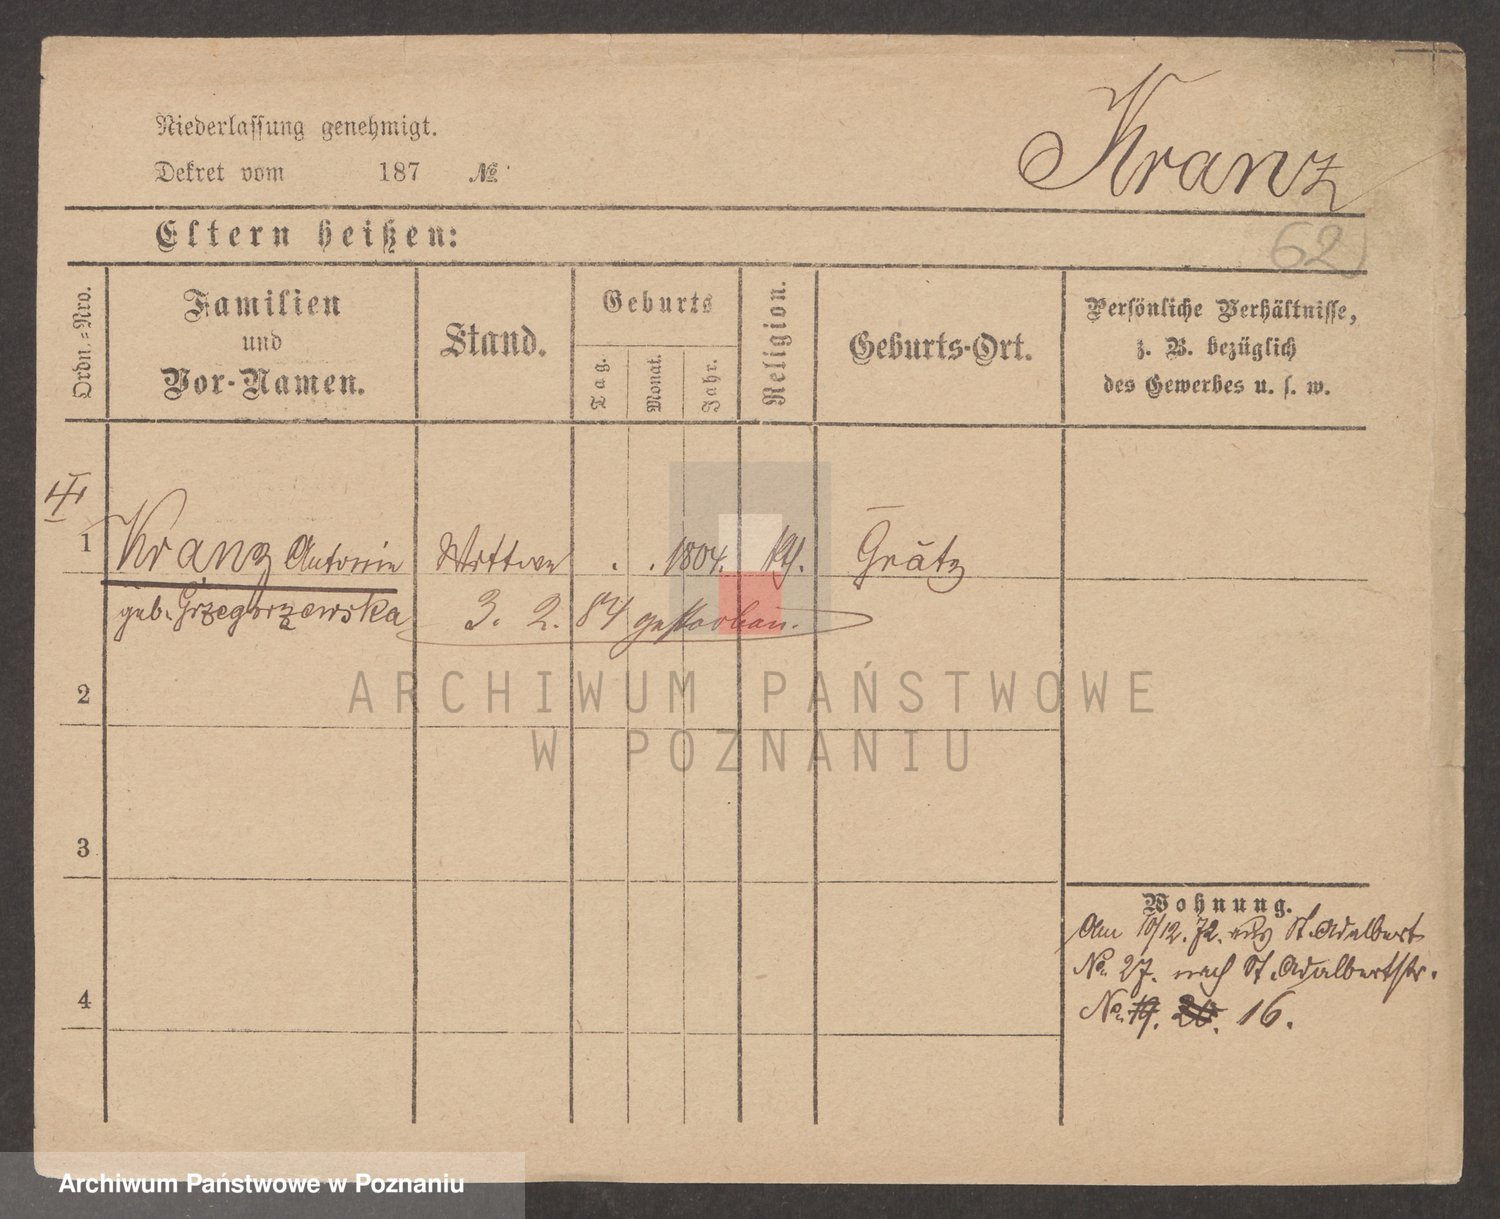 Kranz
Niederlassung genehmigt.
Dekret vom 187 №
62
Eltern heißen:
Ordn.=Nro.
Familien
und
Vor-Namen.
Stand.
Geburts
Tag.
Monat.
Jahr.
Religion.
Geburts-Ort.
Persönliche Verhältnisse,
z. B. bezüglich
des Gewerbes u. s. w.
1 Kranz Antonie Wittwe . . 1804. Grätz
geb. Grzegorzewska 3. 2. 84 gestorben.
2
3
4
Wohnung.
Am 10/12. 72. aus St. Adalbert
No. 27. nach St. Adalbertstr.
No. 19. 20. 16.
ARCHIWUM PAŃSTWOWE
W POZNANIU
Archiwum Państwowe w Poznaniu